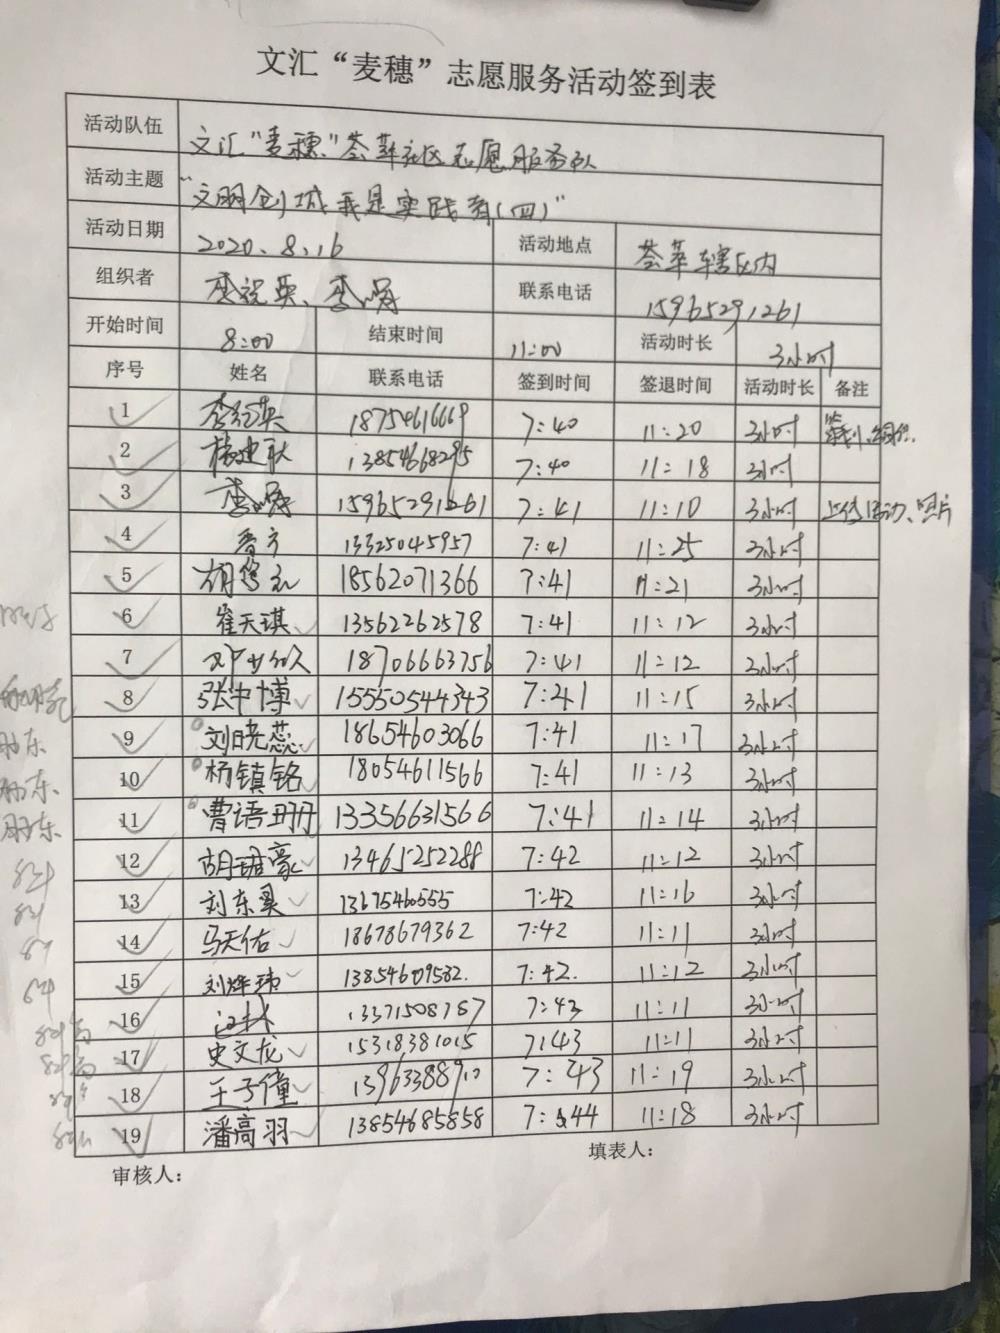 文汇“麦穗”志愿服务活动签到表
活动队伍 文汇“麦穗”荟萃社区志愿服务队
活动主题 “文明创城我是实践者(四)”
活动日期 2020、8、16 活动地点 荟萃辖区内
组织者 李祝英、李娟 联系电话 15965291261
开始时间 8:00 结束时间 11:00 活动时长 3小时
序号 姓名 联系电话 签到时间 签退时间 活动时长 备注
1 18754616669 7:40 11:20 3小时
2 13854668295 7:40 11:18 3小时
3 李娟 15965291261 7:41 11:10 3小时 上传活动、照片
4 13325045957 7:41 11:25 3小时
5 18562071366 7:41 11:21 3小时
6 崔天琪 13562262578 7:41 11:12 3小时
7 18706663756 7:41 11:12 3小时
8 张中博 15550544343 7:41 11:15 3小时
9 刘晓蕊 18654603066 7:41 11:17 3小时
10 杨镇铭 18054611566 7:41 11:13 3小时
11 曹语珊 13356631566 7:41 11:14 3小时
12 胡珺豪 13465252288 7:42 11:12 3小时
13 刘东昊 13675460555 7:42 11:16 3小时
14 马天佑 18678679362 7:42 11:11 3小时
15 刘烨玮 13854609532. 7:42. 11:12 3小时
16 13371508787 7:43 11:11 3小时
17 史文龙 15318381015 7:43 11:11 3小时
18 王子僮 13963388910 7:43 11:19 3小时
19 潘高羽 13854685858 7:44 11:18 3小时
审核人: 填表人: